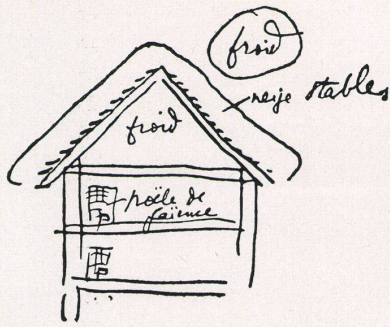 froid
neije stables
froid
poêle de
faïence